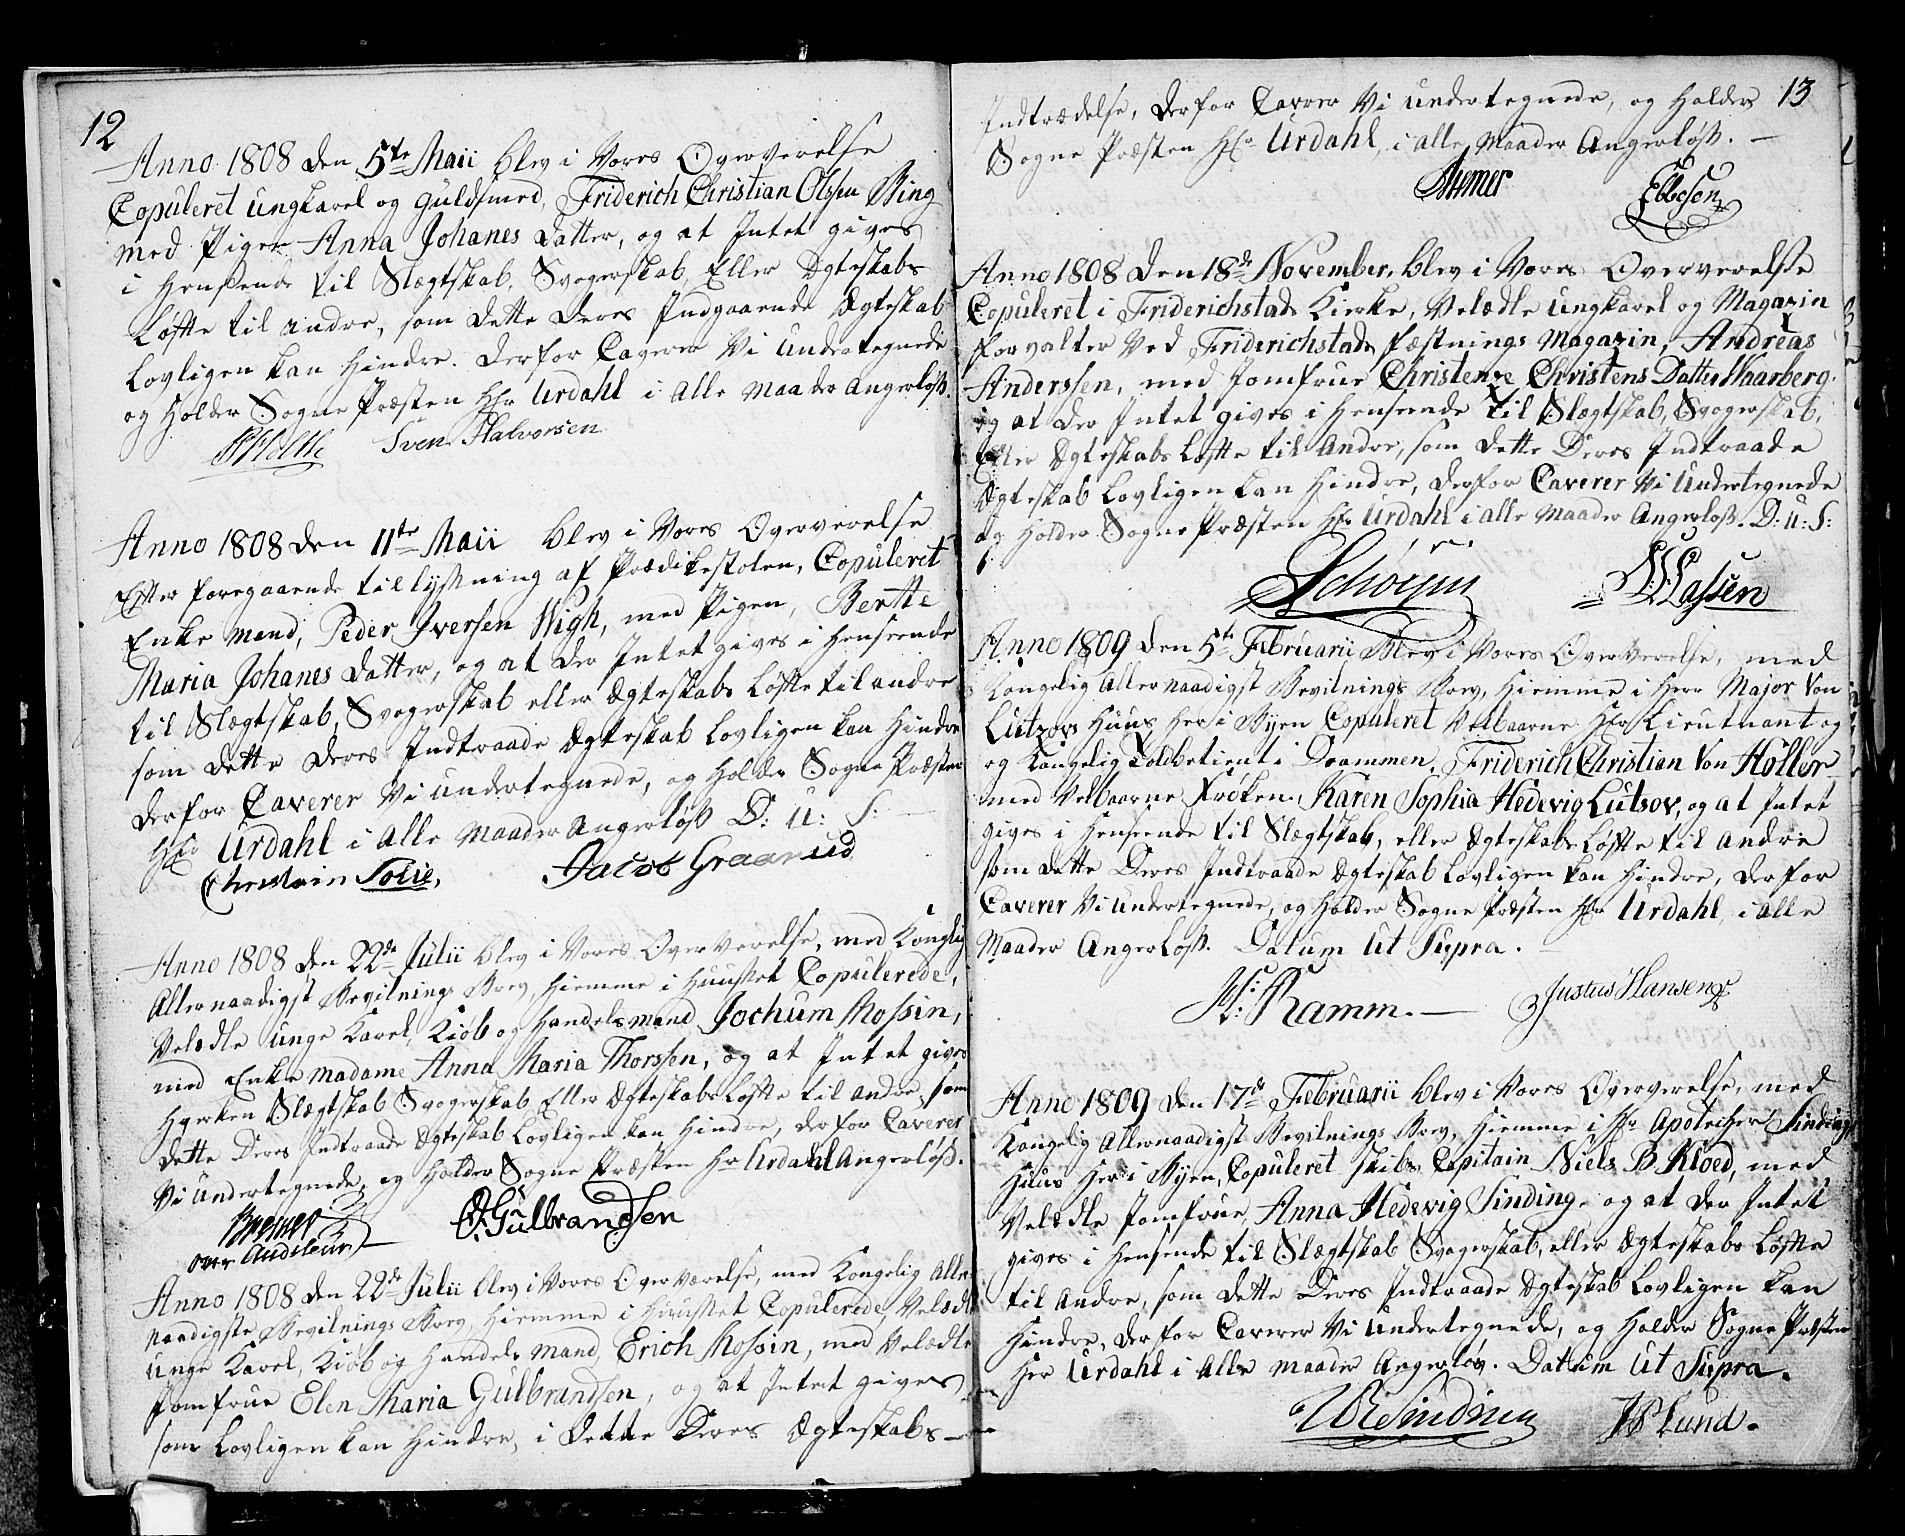 12
Anno 1808 den 5te Maii blev i Vores Oververelse
Copuleret ungkarel og Guldsmed, Friderich Christian Olsen Bing
med Pigen Anna Johanes Datter, og at Intet gives
i Hensende til Slægtskab, Svogerskab, Eller Ægteskabs
Løfte til andre, som dette Deres Indgaaende Ægteskab
Lovligen kan Hindre. Derfor Caverer Vi Undertegnede
og Holder Sogne Præsten Hr Urdahl i alle Maader Angerløss.
Sven Halvorsen
Anno 1808 den 11te Maii blev i Vores Oververelse
Efter foregaaende tillysning af Prædikestolen, Copuleret
Enke mand, Peder Iversen Wigh, med Pigen, Berthe
Maria Johanes Datter, og at der Intet gives i Henseende
til Slægtskab, Svogerskab eller Ægteskabs Løfte til andre
som dette Deres Indtraade Ægteskab Lovligen kan Hindre
derfor Caverer Vi undertegnede, og Holder Sogne Præsten
Hr Urdahl i Alle Maader Angerløss D: U: S:
Christian Solie. Jacob Graarud
Anno 1808 den 22de Julii blev i Vores Oververelse, med Konglig
Allernaadigst Bevilnings Brev, Hiemme i Huuset Copulerede,
Velædle unge Karel, Kiøb og Handelsmand Jochum Mossin,
med Enke madame Anna Maria Thorssen, og at Intet gives
Hverken Slægtskab Svogerskab Eller Ægteskabs Løfte til andre, som
dette Deres Indtraade Ægteskab Lovligen kan Hindre, derfor Caverer
Vi undertegnede, og Holder Sogne Præsten Hr Urdahl Angerløss.
Bremer O. Gulbrandsen
over Auditeur
Anno 1808 den 22de Julii blev i Vores Overværelse, med Kongelig Aller
naadigste Bevilnings Brev, Hiemme i Huuset Copulerede, Velædle
unge Karel, Kiøb og Handels mand, Erich Mossin, med Velædle
Jomfrue Elen Maria Gulbrandsen, og at Intet gives
som Lovligen kan Hindre, i dette Deres Ægteskabs
13
Indtrædelse, derfor Caverer Vi undertegnede, og Holder
Sogne Præsten Hr Urdahl i alle Maader Angerløss.
Bremer Ebbesen
Anno 1808 Den 18de November, blev i Vores Oververelse
Copuleret i Friderichstads Kirke, Velædle Ungkarel og Magazin
forvalter Ved Friderichstads fæstnings Magazin, Andreas
Anderssen, med Jomfrue Christenze Christens Datter Haarberg.
og at der Intet gives i Henseende til Slægtskab, Svogerskab,
Eller Ægteskabs Løfte til andre, som dette Deres Indtraade
Ægteskab Lovligen kan Hindre, derfor Caverer Vi Undertegnede
og Holder Sogne Præsten Hr Urdahl i alle Maader Angerløss. D: U: S:
Lassen
Anno 1809 den 5te Februarii Blev i Vores Oververelse, med
Kongelig Allernaadigst Bevilnings Brev, Hiemme i Herr Major von
Lutzovs Huus her i Byen Copuleret Velbaarne Hr Lieutnant og
og Kongelig Toldbetient i Drammen, Friderich Christian Von Høller
med Velbaarne Frøken, Karen Sophia Hedevig Lutsov, og at Intet
gives i Henseende til Slægtskab, eller Ægteskabs Løfte til andre
som dette Deres Indtraade Ægteskab Lovligen kan Hindre, derfor
Caverer Vi undertegnede, og Holder Sogne Præsten Hr Urdahl, i alle
Maader Angerløss. Datum Ut Supra.
Ramm. Justus Hansen
Anno 1809 den 17de Februarii blev i Vores Oververelse, med
Kongelig Allernaadigst Bevilnings Brev, Hiemme i Hr Apotecher Sindings
Huus Her i Byen, Copuleret Skibs Capitain Niels B Kloed, med
Velædle Jomfrue, Anna Hedevig Sinding, og at der Intet
gives i Hensende til Slægtskab Svogerskab, eller Ægteskabs Løfte
til Andre, som dette Deres Indtraade Ægteskab Lovligen kan
Hindre, derfor Caverer Vi Undertegnede, og Holder Sogne Præsten
Her Urdahl i Alle Maader Angerløs. Datum Ut Supra.
Sinding Lund.